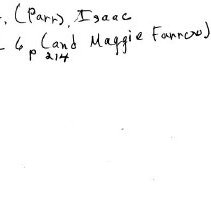 , (Parr), Isaac
- 6 p 214 (and Maggie Farrow)